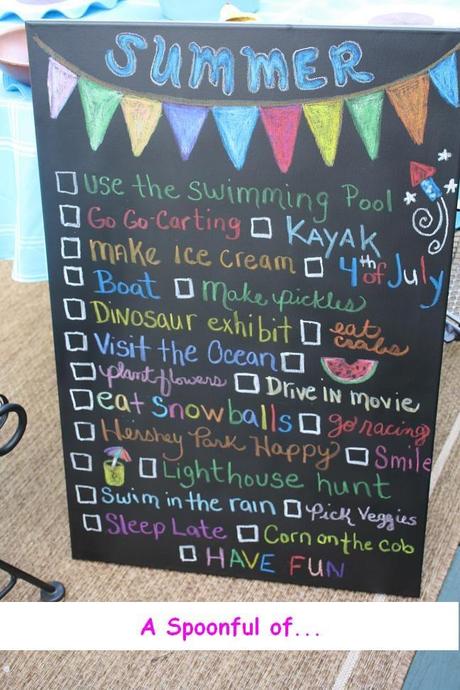 SUMMER
use the swimming Pool
Go Go-Carting KAYAK
make ice cream 4th of July
Boat Make pickles
Dinosaur exhibit eat crabs
Visit the Ocean
plant flowers Drive in movie
eat snowballs go racing
Hershey Park Happy Smile
Lighthouse hunt
Swim in the rain Pick Veggies
Sleep Late Corn on the cob
HAVE FUN
A Spoonful of...